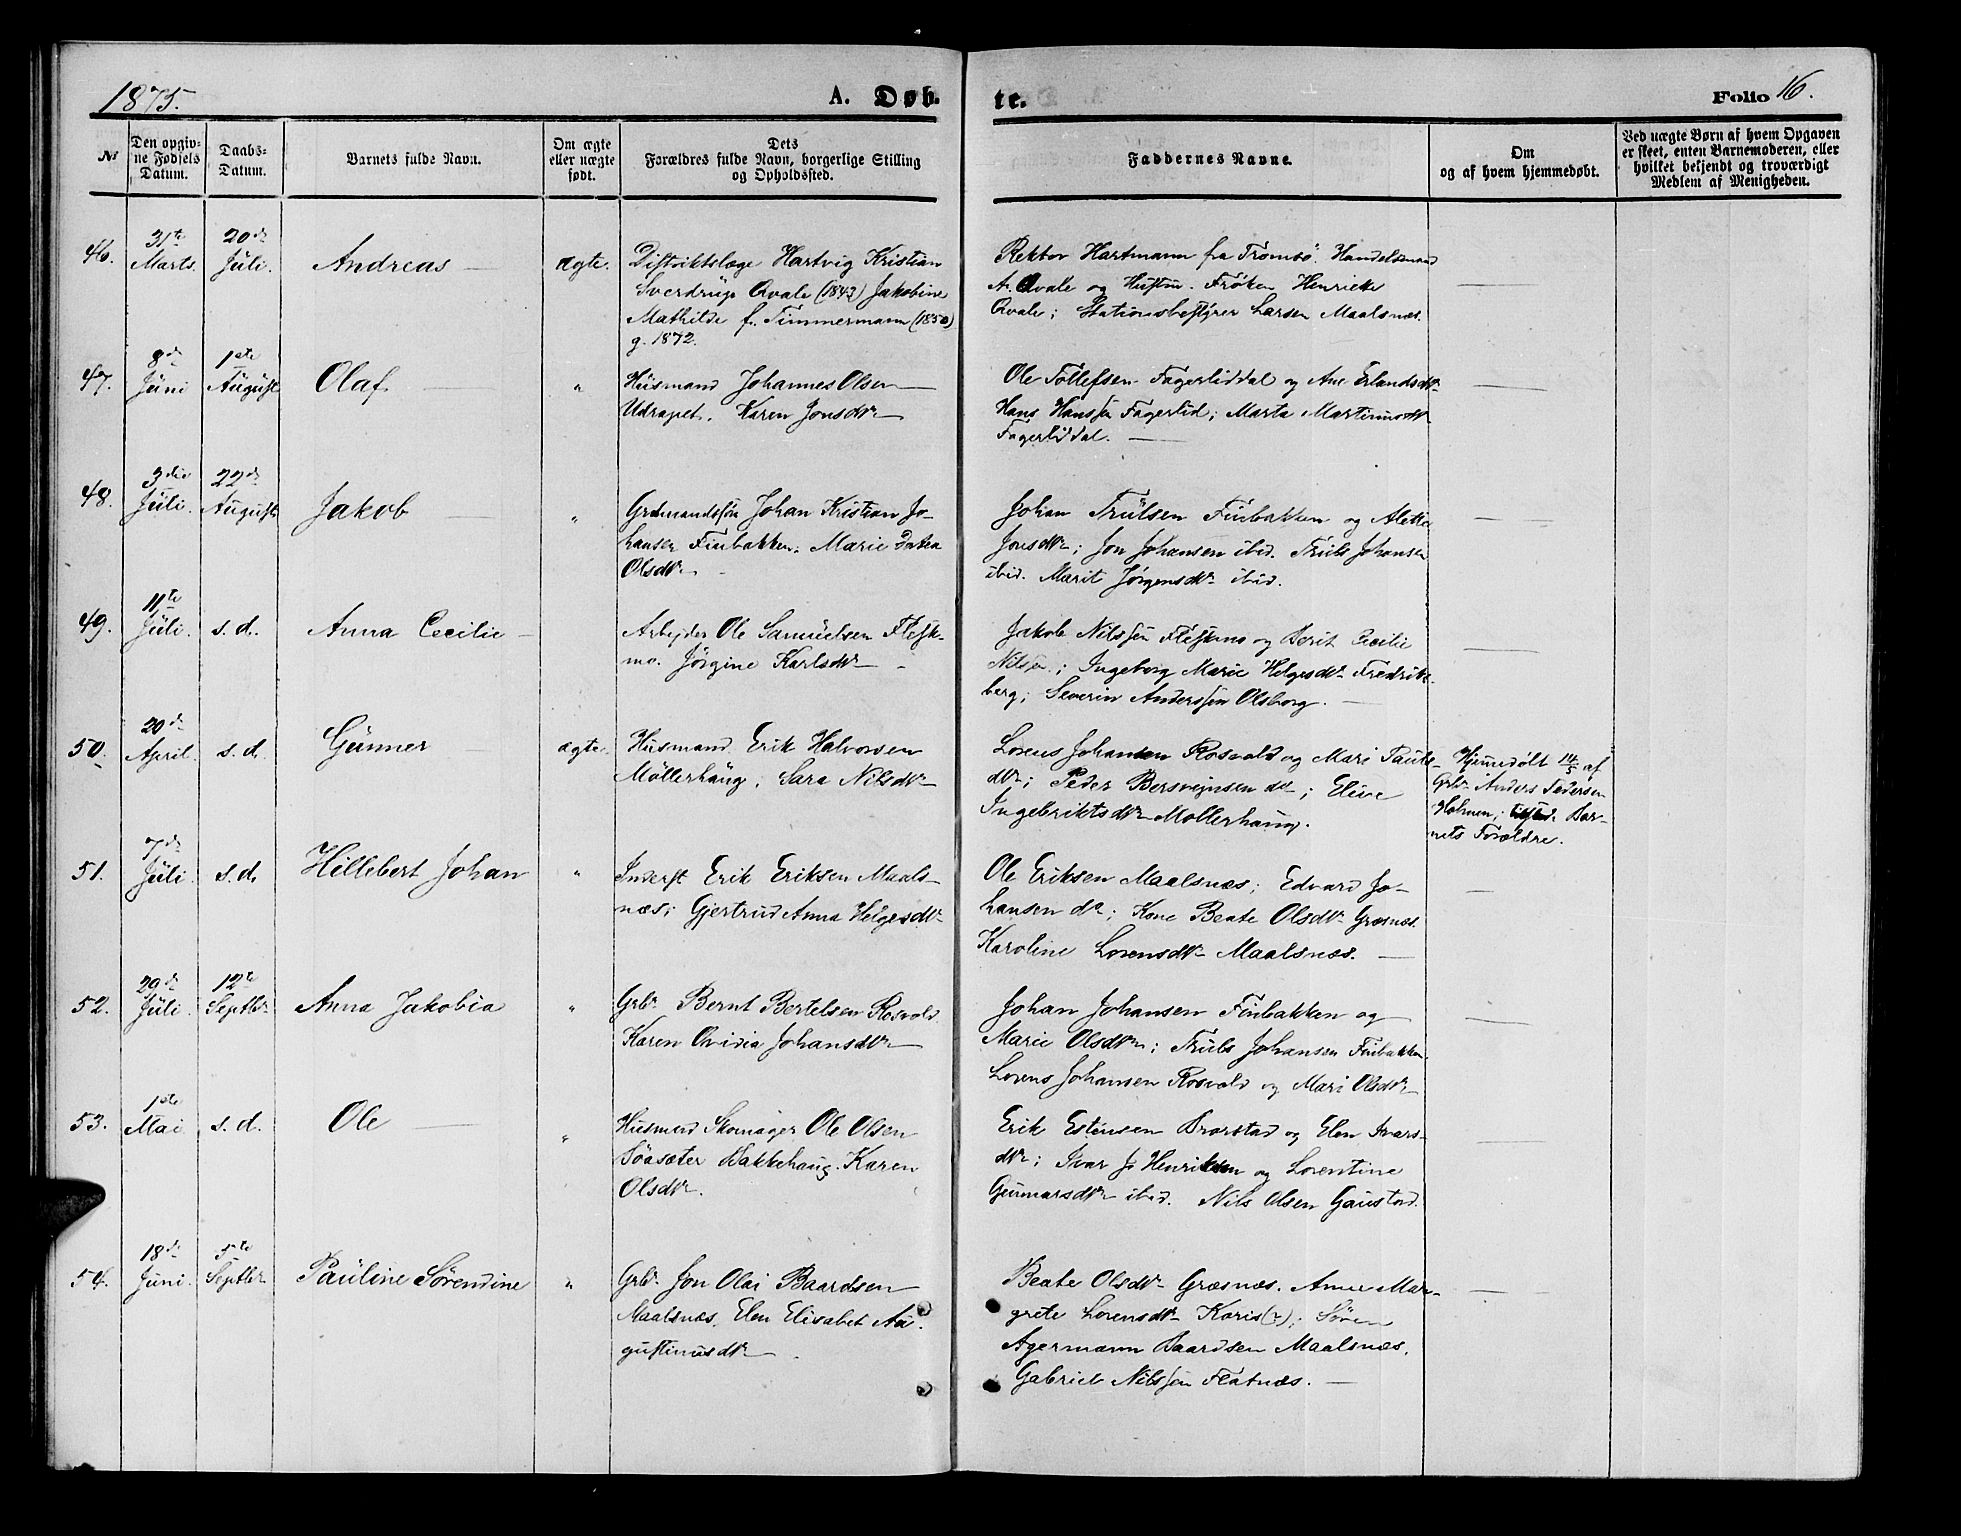 1875.
A. Døb-
te.
Folio 16.
No
Den opgiv-
ne Fødsels
Datum.
Daabs-
Datum.
Barnets fulde Navn.
Om ægte
eller uægte
født.
Dets
Forældres fulde Navn, borgerlige Stilling
og Opholdssted.
Faddernes Navne.
Om
og af hvem hjemmedøbt.
Ved uægte Børn af hvem Opgaven
er skeet, enten Barnemoderen, eller
hvilket bekjendt og troværdigt
Medlem af Menigheden.
46.
31te
Marts.
20de
Juli.
Andreas
ægte.
Distriktslæge Hartvig Kristian
Sverdrup Qvale (1843) Jakobine
Mathilde f. Timmermann (1850)
g. 1872.
Rektor Hartmann fra Tromsö. Handelsmand
A. Qvale og Hustru. Fröken Henrieke
Qvale; Stationsbestyrer Larsen Maalsnæs.
47.
8de
Juni
1ste
August
Olaf
"
Husmand Johannes Olsen
Udrapet. Karen Jonsdtr
Ole Tollefsen Fagerliddal og Ane Erlandsdtr
Hans Hanssen Fagerlid; Marta Martinusdtr
Fagerliddal.
48.
3die
Juli.
22de
August
Jakob
"
Grdmandssön Johan Kristian Jo-
hansen Finbakken. Marie
Olsdtr
Johan Trulsen Finbakken og Aletta
Jonsdtr; Jon Johansen ibid. Truls Johansen
ibid. Marit Jörgensdtr ibid.
49.
11te
Juli.
s. d.
Anna Cecilie
Arbejder Ole Samuelsen Flesk-
mo. Jörgine Karlsdtr
Jakob Nilssen Fleskmo og Berit Cecilie
Nilsen; Ingeborg Marie Helgesdtr Fredriks-
berg; Severin Anderssen Olsborg.
50.
20de
April.
s. d.
Gunner
ægte.
Husmand Erik Halvorsen
Möllerhaug. Sara Nilsdtr
Lorens Johansen Rosvold og Mari Pauls-
dtr; Peder Bersvejnsen do; Eline
Ingebriktsdtr Mollerhaug.
Hjemmedöbt 14/5 af
Grbr Anders Pedersen
Holmen; Bar-
nets Forældre.
51.
7de
Juli.
s. d.
Hillebert Johan
"
Inderst Erik Eriksen Maals-
næs; Gjertrud Anna Helgesdtr
Ole Eriksen Maalsnæs; Edvard Jo-
hansen do; Kone Beate Olsdtr Græsnæs.
Karoline Lorensdtr Maalsnæs.
52.
29de
Juli.
12te
Septbr
Anna Jakobia
"
Grbr Bernt Bertelsen Rosvold.
Karen Ovidia Johansdtr
Johan Johansen Finbakken og
Marie Olsdtr; Truls Johansen Finbakken.
Lorens Johansen Rosvold og Mari Olsdtr
53.
1ste
Mai
s. d.
Ole
"
Husmd Skomager Ole Olsen
Söasæter Bakkehaug. Karen
Olsdtr.
Erik Estensen Brorstad og Elen Ivars-
dtr; Ivar J. Henriksen og Lorentine
Gunnarsdtr ibid. Nils Olsen Gaustad.
54.
18de
Juni.
5te
Septbr
Pauline Sörendine
"
Grbr Jon Olai Baardsen
Maalsnæs. Elen Elisabet Au-
gustinusdtr
Beate Olsdtr Græsnæs. Anne Mar-
grete Lorensdtr Karis(?); Sören
Agermann Baardsen Maalsnæs.
Gabriel Nilssen Flatnæs.